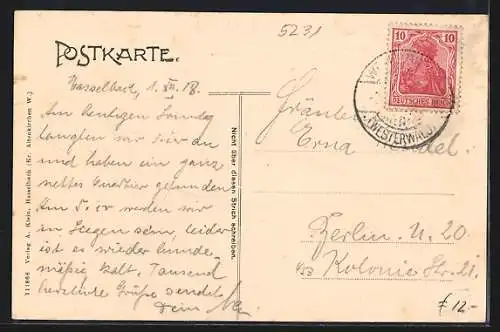 5231
POSTKARTE.
Hasselbach, 1. XII. 18.
Am heutigen Sonntag
langten wir hier an
und haben ein ganz
nettes Quartier gefunden
Am 5. er werden wir
in Siegen sein, leider
ist es wieder hunde-
mäßig kalt. Tausend
herzliche Grüße sendet
Dein
111868 Verlag A. Klein, Hasselbach (Kr. Altenkirchen W.)
Nicht über diesen Strich schreiben.
10 10
DEUTSCHES REICH
(WESTERWALD)
Fräulein
Erna
Berlin N. 20
Kolonie Str. 21.
£ 12-